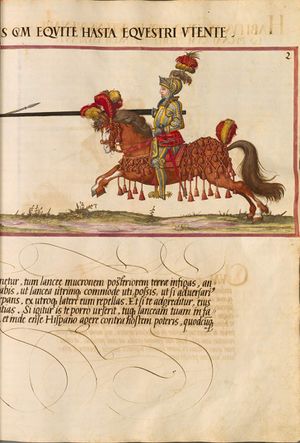 S CṼM EQVITE HASTA EQVESTRI VTENTE.
2
netur, tum lanceę mucronem posteriorem terrę infigas, an
abis, ut lancea utrinq; commode uti possis. ut si aduersari⁹
epans, ex utroq; latere eum repellas. Et si te adgreditur, eius
tias, Si igitur is te porro urserit, tuq; lanceam tuam in fa
et inde ense Hispano agere contra hostem poteris, quodcuq;